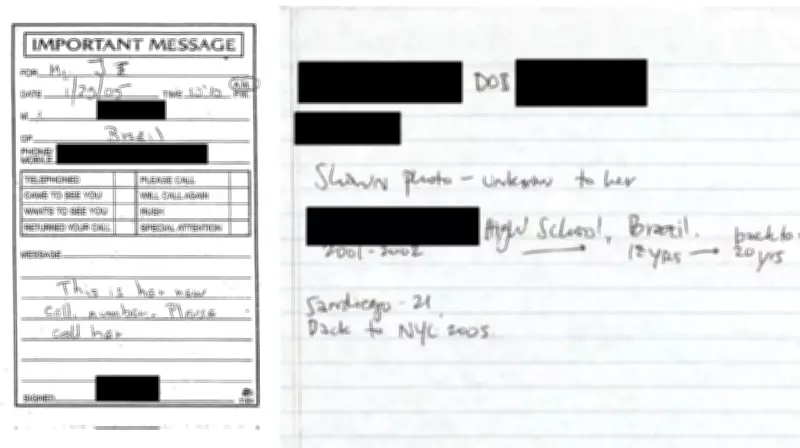 IMPORTANT MESSAGE
FOR Mr. J E
DATE 1/29/05 TIME AM PM
M
OF Brazil
PHONE/
MOBILE
TELEPHONED PLEASE CALL
CAME TO SEE YOU WILL CALL AGAIN
WANTS TO SEE YOU RUSH
RETURNED YOUR CALL SPECIAL ATTENTION
MESSAGE
This is her new
cell. number. Please
call her
SIGNED
DOB
Shown photo - unknown to her
High School, Brazil. back to
2001-2002 → 18 yrs → 20 yrs
Sandiego - 21.
Back to NYC 2005.